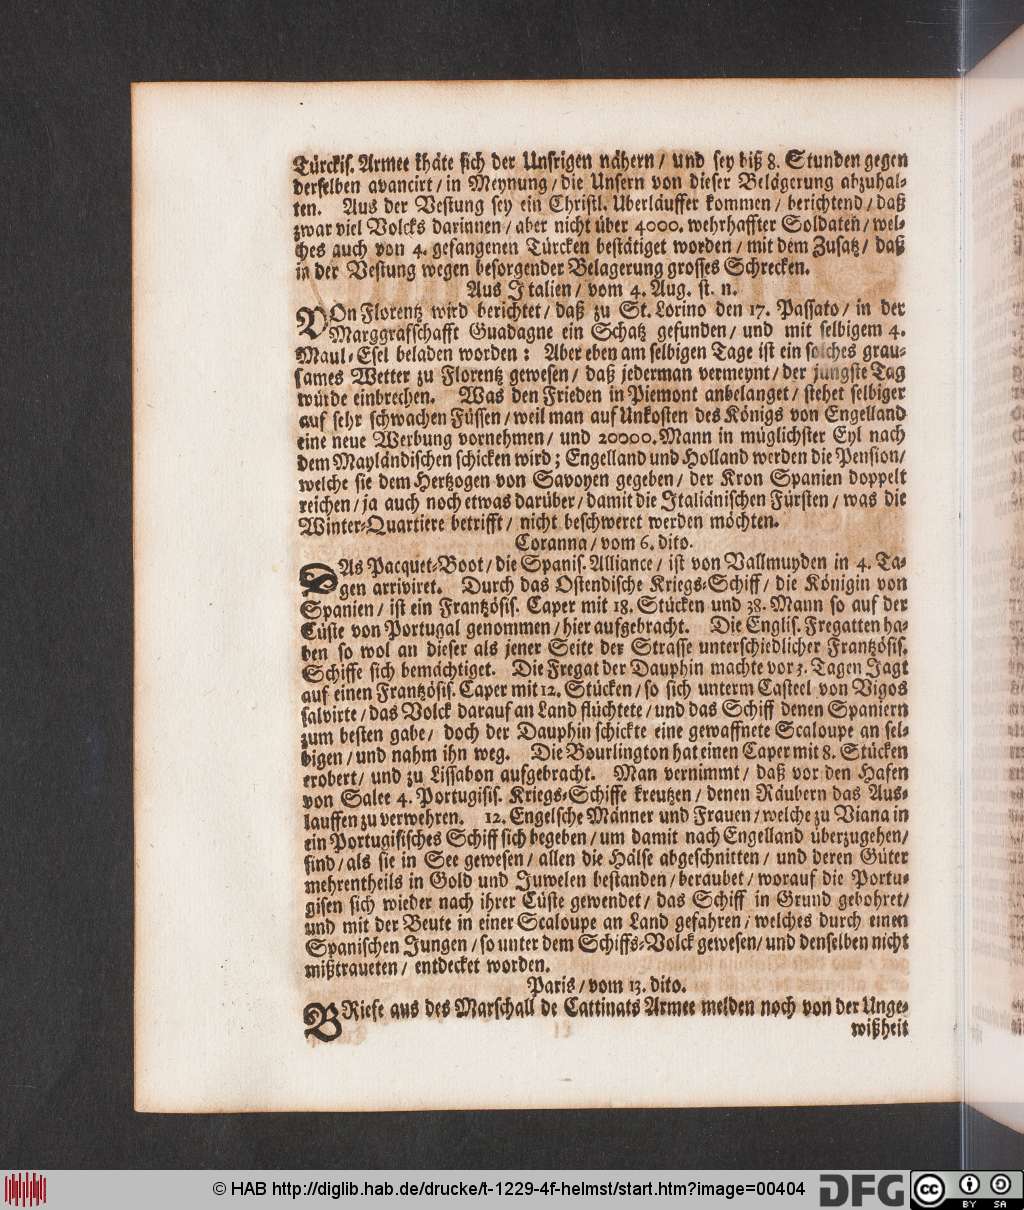 Türckis. Armee thäte sich der Unsrigen nähern / und sey biß 8. Stunden gegen
derselben avancirt / in Meynung / die Unsern von dieser Belägerung abzuhal-
ten. Aus der Vestung sey ein Christl. Uberläuffer kommen / berichtend / daß
zwar viel Volcks darinnen / aber nicht über 4000. wehrhaffter Soldaten / wel-
ches auch von 4. gefangenen Türcken bestätiget worden / mit dem Zusatz / daß
in der Vestung wegen besorgender Belagerung grosses Schrecken.
Aus Italien / vom 4. Aug. st. n.
VOn Florentz wird berichtet / daß zu St. Lorino den 17. Passato / in der
Marggrafschafft Guadagne ein Schatz gefunden / und mit selbigem 4.
Maul-Esel beladen worden: Aber eben am selbigen Tage ist ein solches grau-
sames Wetter zu Florentz gewesen / daß jederman vermeynt / der jüngste Tag
würde einbrechen. Was den Frieden in Piemont anbelanget / stehet selbiger
auf sehr schwachen Füssen / weil man auf Unkosten des Königs von Engelland
eine neue Werbung vornehmen / und 20000. Mann in müglichster Eyl nach
dem Mayländischen schicken wird; Engelland und Holland werden die Pension /
welche sie dem Hertzogen von Savoyen gegeben / der Kron Spanien doppelt
reichen / ja auch noch etwas darüber / damit die Italiänischen Fürsten / was die
Winter-Quartiere betrifft / nicht beschweret werden möchten.
Coranna / vom 6. dito.
DAs Pacquet-Boot / die Spanis. Alliance / ist von Vallmuyden in 4. Ta-
gen arriviret. Durch das Ostendische Kriegs-Schiff / die Königin von
Spanien / ist ein Frantzösis. Caper mit 18. Stücken und 38. Mann so auf der
Cüste von Portugal genommen / hier aufgebracht. Die Englis. Fregatten ha-
ben so wol an dieser als jener Seite der Strasse unterschiedlicher Frantzösis.
Schiffe sich bemächtiget. Die Fregat der Dauphin machte vor 3. Tagen Jagt
auf einen Frantzösis. Caper mit 12. Stücken / so sich unterm Casteel von Vigos
salvirte / das Volck darauf an Land flüchtete / und das Schiff denen Spaniern
zum besten gabe / doch der Dauphin schickte eine gewaffnete Scaloupe an sel-
bigen / und nahm ihn weg. Die Bourlington hat einen Caper mit 8. Stücken
erobert / und zu Lissabon aufgebracht. Man vernimmt / daß vor den Hafen
von Salee 4. Portugisis. Kriegs-Schiffe kreutzen / denen Räubern das Aus-
lauffen zu verwehren. 12. Engelsche Männer und Frauen / welche zu Viana in
ein Portugisisches Schiff sich begeben / um damit nach Engelland überzugehen /
sind / als sie in See gewesen / allen die Hälse abgeschnitten / und deren Güter
mehrentheils in Gold und Juwelen bestanden / beraubet / worauf die Portu-
gisen sich wieder nach ihrer Cüste gewendet / das Schiff in Grund gebohret /
und mit der Beute in einer Scaloupe an Land gefahren / welches durch einen
Spanischen Jungen / so unter dem Schiffs-Volck gewesen / und denselben nicht
mißtraueten / entdecket worden.
Paris / vom 13. dito.
BRiefe aus des Marschall de Cattinats Armee melden noch von der Unge-
wißheit
© HAB http://diglib.hab.de/drucke/t-1229-4f-helmst/start.htm?image=00404
DFG
cc BY SA